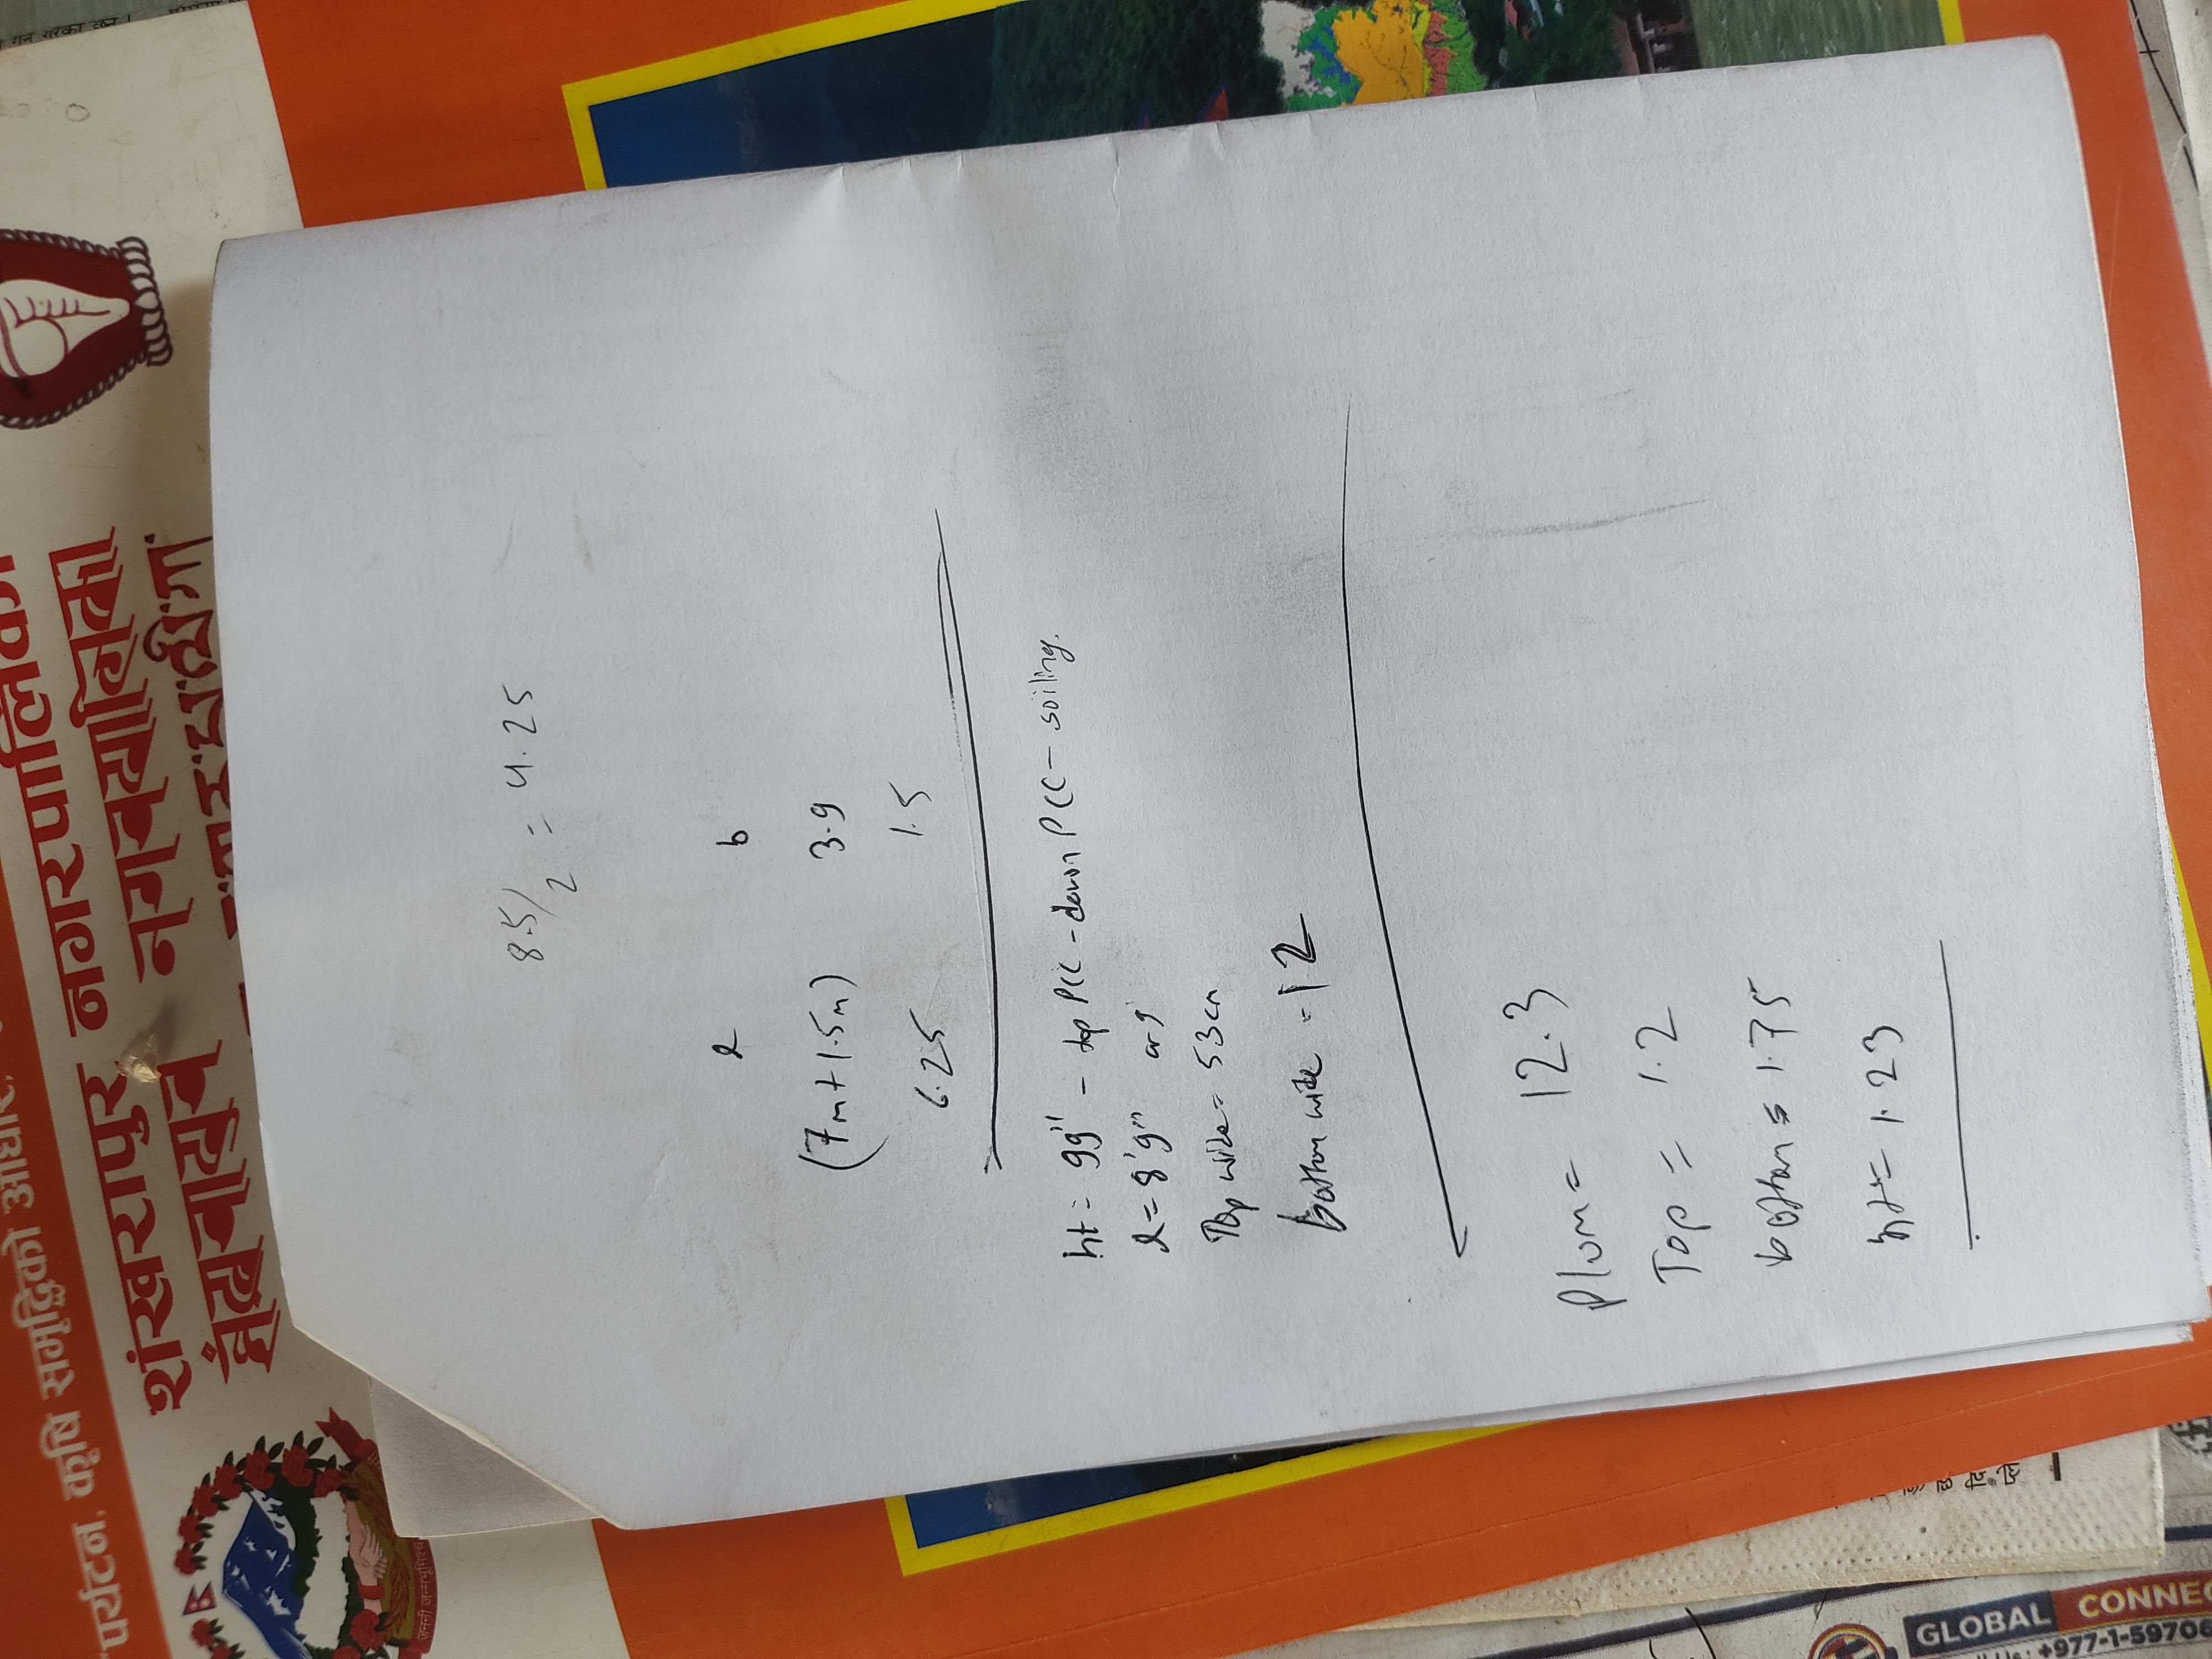 "पर्यटन, कृषि समृद्धिको आधार,
शंखरापुर नगरपालिका
जननी जन्मभूमिश्च
8.5/2 = 4.25
l b
(7m+1.5m) 3.9
6.25 1.5
ht = 99" - top PCC - down PCC - soiling.
l = 8'9" or 9'
Top wide = 53cm
bottom wide = 12
Plum = 12.3
Top = 1.2
bottom = 1.75
ht = 1.23
GLOBAL
CONNE
+977-1-59706